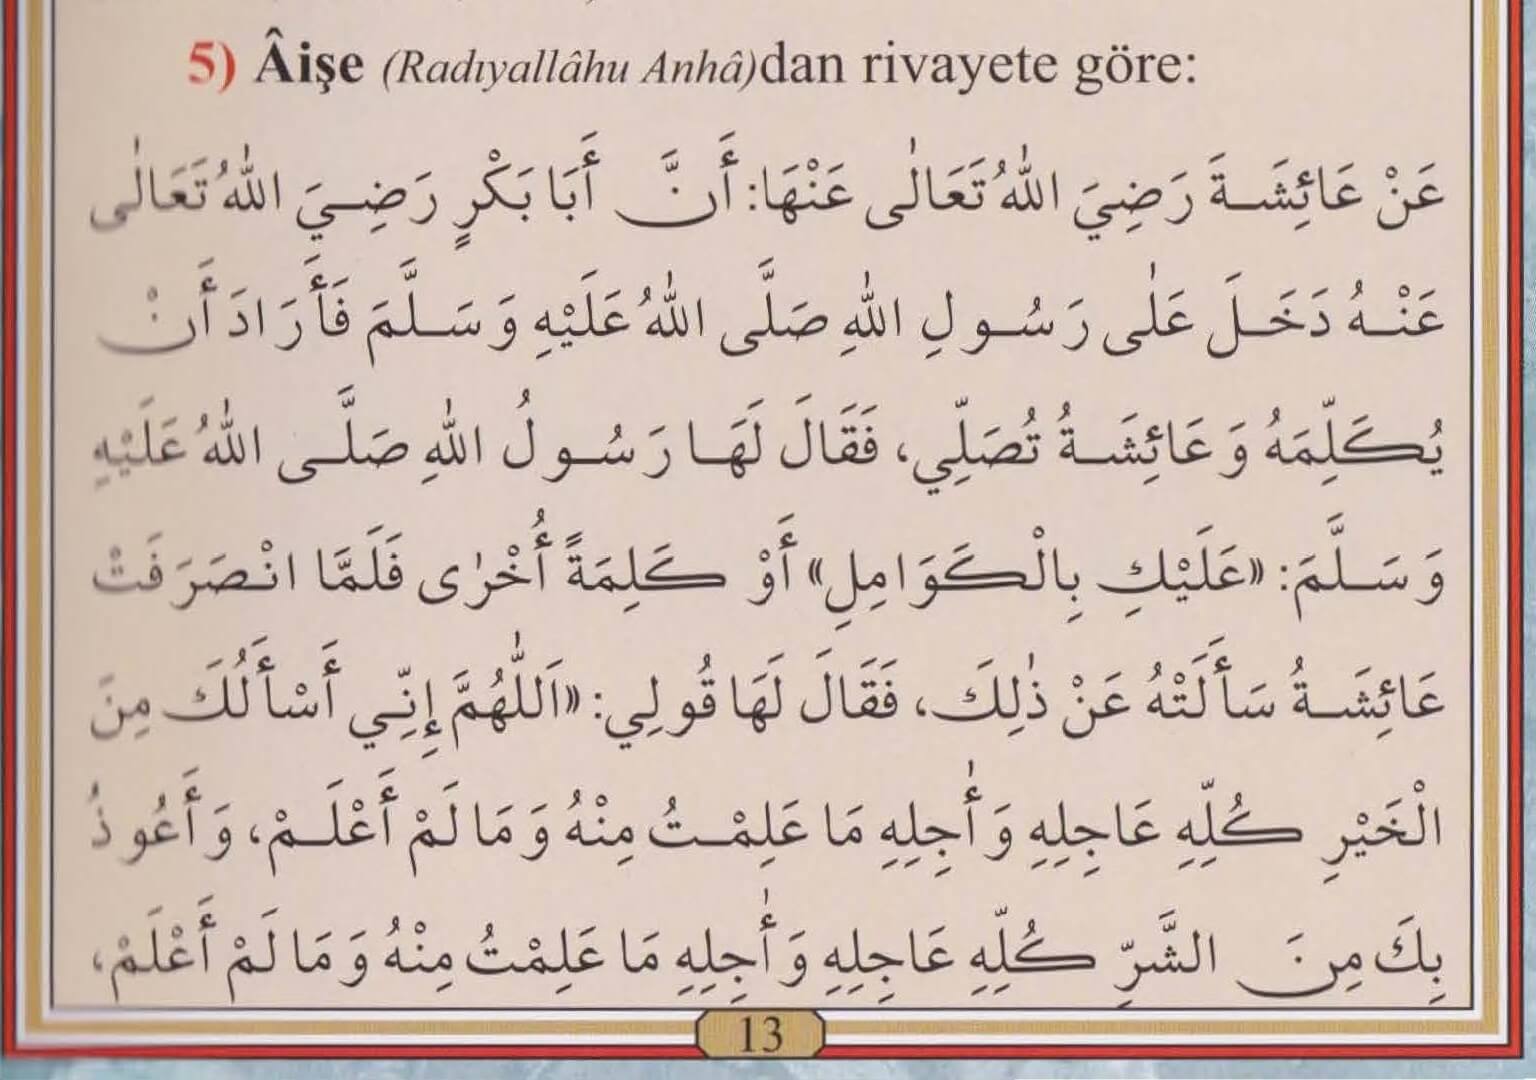 5) Âişe (Radıyallâhu Anhâ)dan rivayete göre:
عَنْ عَائِشَةَ رَضِيَ اللّٰهُ تَعَالٰى عَنْهَا: أَنَّ أَبَا بَكْرٍ رَضِيَ اللّٰهُ تَعَالٰى
عَنْهُ دَخَلَ عَلٰى رَسُولِ اللّٰهِ صَلَّى اللّٰهُ عَلَيْهِ وَسَلَّمَ فَأَرَادَ أَنْ
يُكَلِّمَهُ وَعَائِشَةُ تُصَلِّي، فَقَالَ لَهَا رَسُولُ اللّٰهِ صَلَّى اللّٰهُ عَلَيْهِ
وَسَلَّمَ: «عَلَيْكِ بِالْكَوَامِلِ» أَوْ كَلِمَةً أُخْرٰى فَلَمَّا انْصَرَفَتْ
عَائِشَةُ سَأَلَتْهُ عَنْ ذٰلِكَ، فَقَالَ لَهَا قُولِي: «اَللّٰهُمَّ إِنِّي أَسْأَلُكَ مِنَ
الْخَيْرِ كُلِّهِ عَاجِلِهِ وَأٰجِلِهِ مَا عَلِمْتُ مِنْهُ وَمَا لَمْ أَعْلَمْ، وَأَعُوذُ
بِكَ مِنَ الشَّرِّ كُلِّهِ عَاجِلِهِ وَأٰجِلِهِ مَا عَلِمْتُ مِنْهُ وَمَا لَمْ أَعْلَمْ،
13